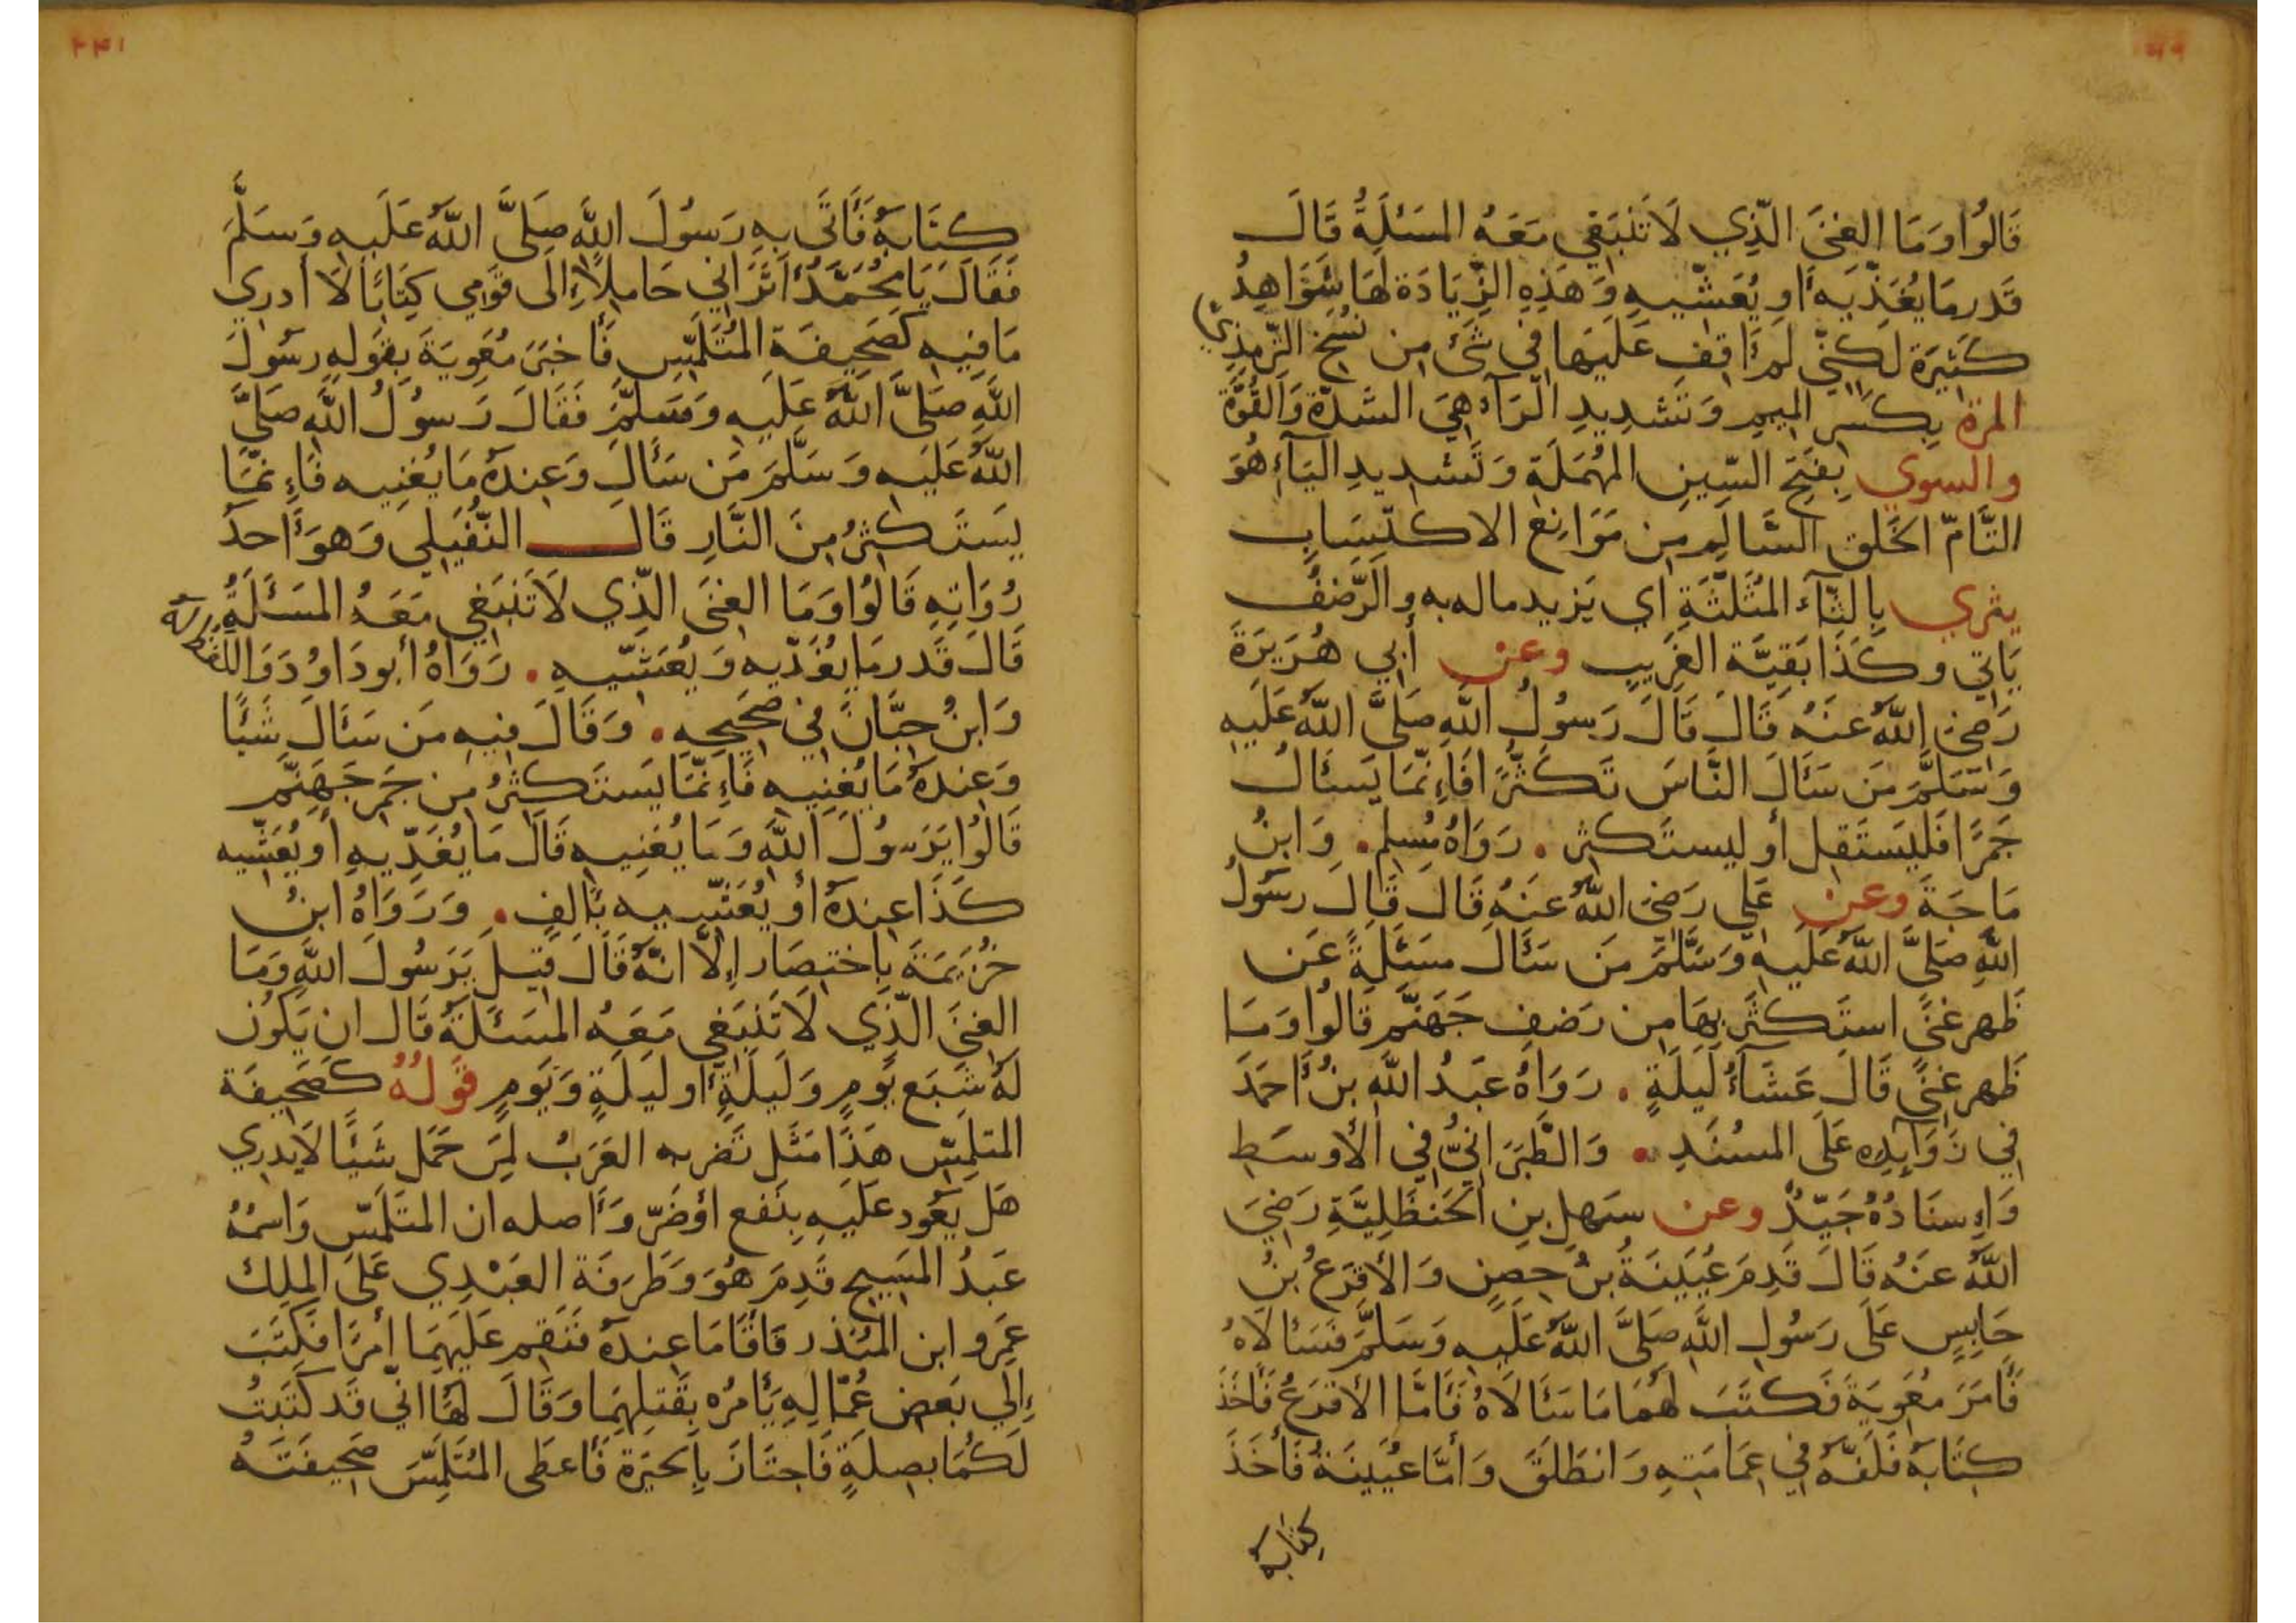 قَالُوا وَمَا الغِنَى الَّذِي لَا تَنْبَغِي مَعَهُ المَسْئَلَةُ قَالَ
قَدرَ مَا يُغَذِّيَهِ أَو يُعَشِّيهِ وَهَذِهِ الزِّيَادَة لَهَا شَوَاهِدُ
كَثِيرَة لَكِنِّي لَم أَقِف عَلَيهَا فِي شَئ مِن نُسَخ التِّرمِذِيّ
المرة بِكَسرِ المِيمِ وَتَشدِيدِ الرَآءِ هِيَ الشدَّة وَالقُوَّة
والسوي بِفَتحِ السِّينِ المُهمَلَة وَتَشدِيدِ اليَآءِ هُوَ
التَّامّ الخَلق السَّالِم مِن مَوَانِع الاكتِسَابِ
يثري بِالثَّآء المُثَلَّثَةِ أي يَزيد ماله به والرَّضفُ
يَاتي وكَذَا بَقِيَّة الغَرِيبِ وعن أبي هُرَيرَةَ
رَضِيَ اللَّهُ عَنهُ قَالَ قَالَ رَسُولُ اللَّهِ صَلَّى اللَّهُ عَلَيهِ
وَسَلَّمَ مَن سَئَالَ النَّاسَ تَكَثُّرًا فَإِنَّمَا يَسئَالُ
جَمرًا فَليَستَقِل أو ليستَكثِر . رَوَاهُ مُسلِم . وَابنُ
مَاجَةَ وعن عَلي رَضِيَ اللَّهُ عَنهُ قَالَ قَالَ رسُولُ
اللَّهِ صَلَّى اللَّهُ عَلَيهِ وَسَلَّمَ مَن سَئَالَ مَسئَلَةً عَن
ظَهرِ غِنًى استَكثَرَ بِهَا مِن رَضفِ جَهَنَّم قَالُوا وَمَا
ظَهر غِنًى قَالَ عَشَآءُ لَيلَةٍ . رَوَاهُ عَبدُ اللَّهِ بنُ أَحمَدَ
فِي زَوَآيِدِه عَلَى المسُنَدِ . وَالطَّبَرَانِيُّ فِي الأوسَطِ
وَإِسنَادُهُ جَيِّدٌ وعن سَهلِ بنِ الحَنظَلِيَّةِ رَضِيَ
اللَّهُ عَنهُ قَالَ قَدِمَ عُيَينَةُ بنُ حِصنٍ وَالأَقرَعُ بنُ
حَابِسٍ عَلَى رَسُولِ اللَّهِ صَلَّى اللَّهُ عَلَيهِ وَسَلَّمَ فَسَئَالَاهُ
فَأَمَرَ مُعَوِيَةَ فَكَتَبَ لَهُمَا مَا سَئَالَاهُ فَأَمَّا الأَقرَعُ فَأَخَذَ
كِتَابَهُ فَلَفَّهُ فِي عِمَامَتِهِ وَانطَلَقَ وَأَمَّا عُيَينَةُ فَأَخَذَ
كتابه
٢٤١
كِتَابَهُ فَأَتَى بِهِ رَسُولَ اللَّهِ صَلَّى اللَّهُ عَلَيهِ وَسَلَّمَ
فَقَالَ يَا مُحَمَّدُ أَتَرَانِي حَامِلًا إِلَى قَومِي كِتَابًا لَا أَدرِي
مَا فِيهِ كَصَحِيفَةِ المُتَلَمِّسِ فَأَخبَرَ مُعَوِيَةَ بِقَولِهِ رسُولَ
اللَّهِ صَلَّى اللَّهُ عَلَيهِ وَسَلَّمَ فَقَالَ رَسُولُ اللَّهِ صَلَّى
اللَّهُ عَلَيهِ وَسَلَّمَ مَن سَئَالَ وَعِندَهُ مَا يُغنِيه فَإِنَّمَا
يَستَكثِرُ مِنَ النَّارِ قَالَ النُّفَيلِي وَهوَ أَحدُ
رُوَاتِهِ قَالُوا وَمَا الغِنَى الَّذِي لَا تَنبَغِي مَعَهُ المَسئَلَةُ
قَالَ قَدر مَا يُغَذِّيه وَيُعَشِّيهِ . رَوَاهُ أبو دَاوُد وَاللفظ له
وَابنُ حِبَّانَ فِي صَحِيحِهِ . وَقَالَ فِيهِ مَن سَئَالَ شَيئًا
وَعِندَهُ مَا يُغنِيهِ فَإِنَّمَا يَستَكثِرُ مِن جَمرِ جَهَنَّم
قَالُوا يَرَسُولَ اللَّهِ وَمَا يُغنِيهِ قَالَ مَا يُغَدِّيهِ أَو يُعَشِّيه
كَذَا عِندَهُ أَو يُعَشِّيهِ بِأَلِفٍ . وَرَوَاهُ ابنُ
خُزَيمَةَ بِاختِصَارٍ إِلَّا انَّهُ قَالَ قِيلَ يَرَسُولَ اللَّهِ وَمَا
الغِنَى الَّذِي لَا تَنبَغِي مَعَهُ المَسئَلَةُ قَالَ ان يَكُون
لَهُ شَبَع يَومٍ وَلَيلَةٍ أَو لَيلَةٍ وَيَومٍ قَولُهُ كَصَحِيفَة
المتلَمِّسِ هَذَا مَثَل تَضربه العَرَبُ لِمَن حَمَل شَيئًا لَا يَدرِي
هَل يَعُود عَلَيهِ بِنَفع أوضَرّ وَأَصله ان المتَلَمِّس وَاسمُهُ
عَبدُ المَسِيحِ قَدِمَ هُوَ وَطَرَفَة العَبْدِي عَلَى المَلِك
عَمرو ابن المُنذر فَاقَامَا عِندَهُ فَنَقِم عَلَيهِمَا أمرًا فَكَتَبَ
إِلَي بَعض عُمَّالِهِ يَأمُرُه بِقَتلِهِمَا وَقَالَ لَهُمَا انّي قَد كَتَبتُ
لَكُمَا بِصِلَةٍ فَاجتَازَ بِالحَيرَة فَأَعطَى المُتَلَمِّسَ صَحِيفَتَهُ